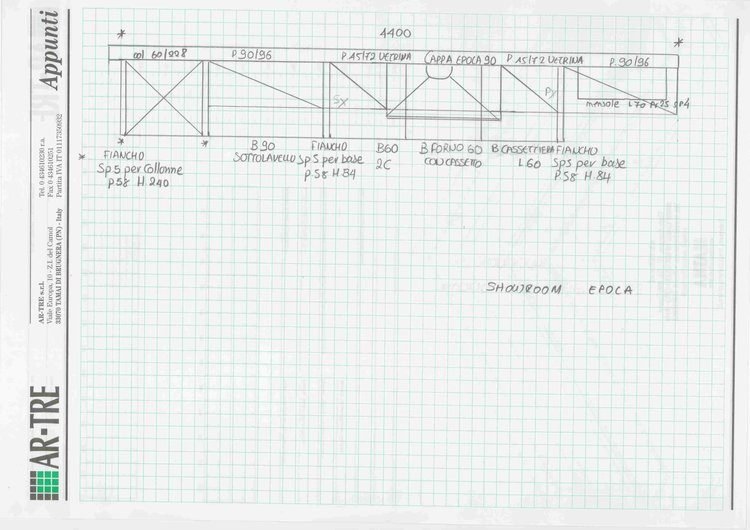 4400
col 60/228 P 90/96 P 45/72 VETRINA CAPPA EPOCA 90 P 45/72 VETRINA P 90/96
SX PX
mensole L70 P.25 SP4
* FIANCHO
Sp 5 per Collonne
p 58 H 240
B 90
SOTTOLAVELLO
FIANCHO
Sp 5 per base
p 58 H 84
B60
2C
B FORNO 60
CON CASSETTO
B CASSETTIERA
L 60
FIANCHO
Sp5 per base
P 58 H 84
SHOWROOM EPOCA
Appunti
Tel. 0434/610230 r.a.
Fax 0434/610251
Partita IVA IT 01117350932
AR-TRE s.r.l.
Viale Europa, 10 - Z.I. del Camol
33070 TAMAI DI BRUGNERA (PN) - Italy
AR-TRE